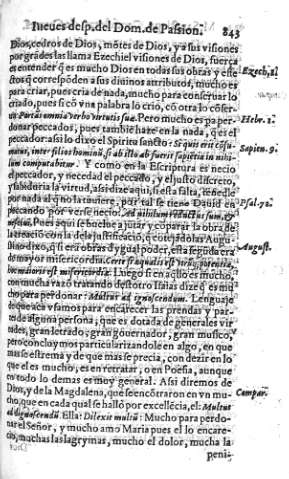 Iueues desp. del Dom. de Passion. 843
Dios, cedros de Dios, mõtes de Dios, y a sus visiones
por grãdes las llama Ezechiel visiones de Dios, fuerça
es entender q̃ es mucho Dios en todas sus obras y este
para criar, pues cria de nada, mucho para conseruar lo
criado, pues si cõ vna palabra lo crio, cõ otra lo
Portans omnia verbo virtutis suæ. Pero mucho es para per-
donar peccados, pues tambiẽ haze en la nada, q̃ es el
peccador: assi lo dixo el Spiritu sancto: Si quis erit cõsu-
matus, inter filios hominũ, si ab illo ab fuerit sapiẽtia in nihi-
lum computabitur. Y como en la Escriptura es necio
el peccador, y necedad el peccado, y el justo discreto,
y sabiduria la virtud, assi dize aqui, si esta falta,
por nada al q̃ no la tuuiere, por tal se tiene Dauid en
peccando por verse necio. Ad nihilum redactus sum, &
Pues aqui se buelue a jutar y coparar la obra de
la creació con la dela justificació, y cotejádolas Augu-
stino dixo, q̃ si era obra de ygual poder, esta segũda era
de mayor misericordia. Certe si æqualis est potentiæ,
hoc maioris est misericordiæ. Luego si en aq̃llo es mucho,
con mucha razõ tratando destotro Isaias dize q̃ es mu
cho para perdonar: Multus ad ignoscendum. Lenguaje
de que acà vsamos para encarecer las prendas y par-
tes de alguna persona, que es dotada de generales vir
tudes, gran letrado, gran gouernador, gran musico, y
pero concluymos particularizandole en algo, en que
mas se estrema y de que mas se precia, con dezir en lo
que el es mucho, es en retratar, o en Poesia, aunque
en todo lo demas es muy general. Assi diremos de
Dios, y de la Magdalena, que se encõtraron en vn mu-
cho, que en cada qual se hallò por excellẽcia, el: Multus
ad ignoscendũ. Ella: Dilexit multũ: Mucho para perdo-
nar el Señor, y mucho amo Maria pues el lo encare-
cio, muchas las lagrymas, mucho el dolor, mucha la
peni-
Ezech. 1.
Hebr. 1.
Sapien. 9.
Psal. 72.
August.
Compar.